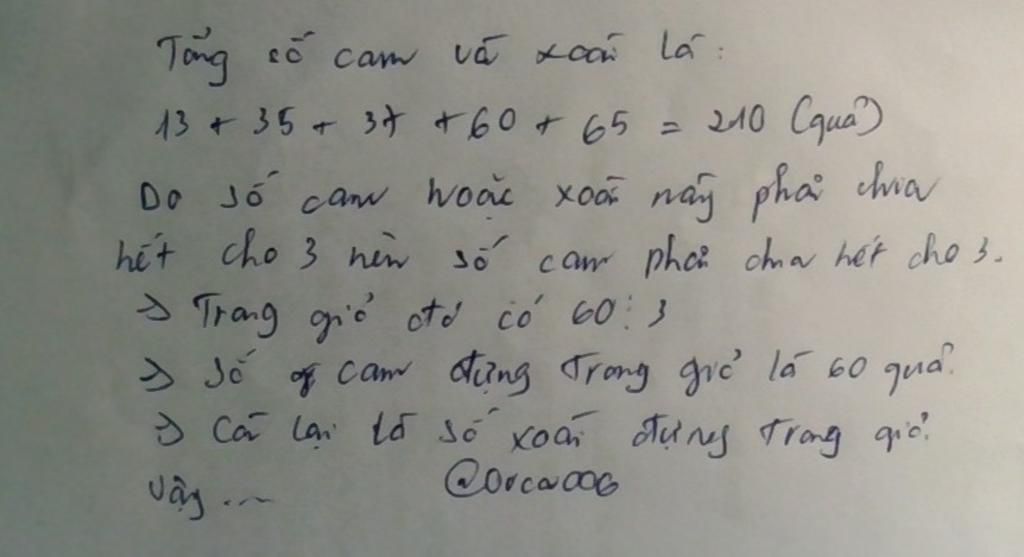 Tổng số cam và xoài là:
13 + 35 + 37 + 60 + 65 = 210 (quả)
Do số cam hoặc xoài này phải chia
hết cho 3 nên số cam phải chia hết cho 3.
=> Trong giỏ đó có 60 : 3
=> Số cam đựng trong giỏ là 60 quả.
=> Còn lại là số xoài đựng trong giỏ.
Vậy ... @Orca006